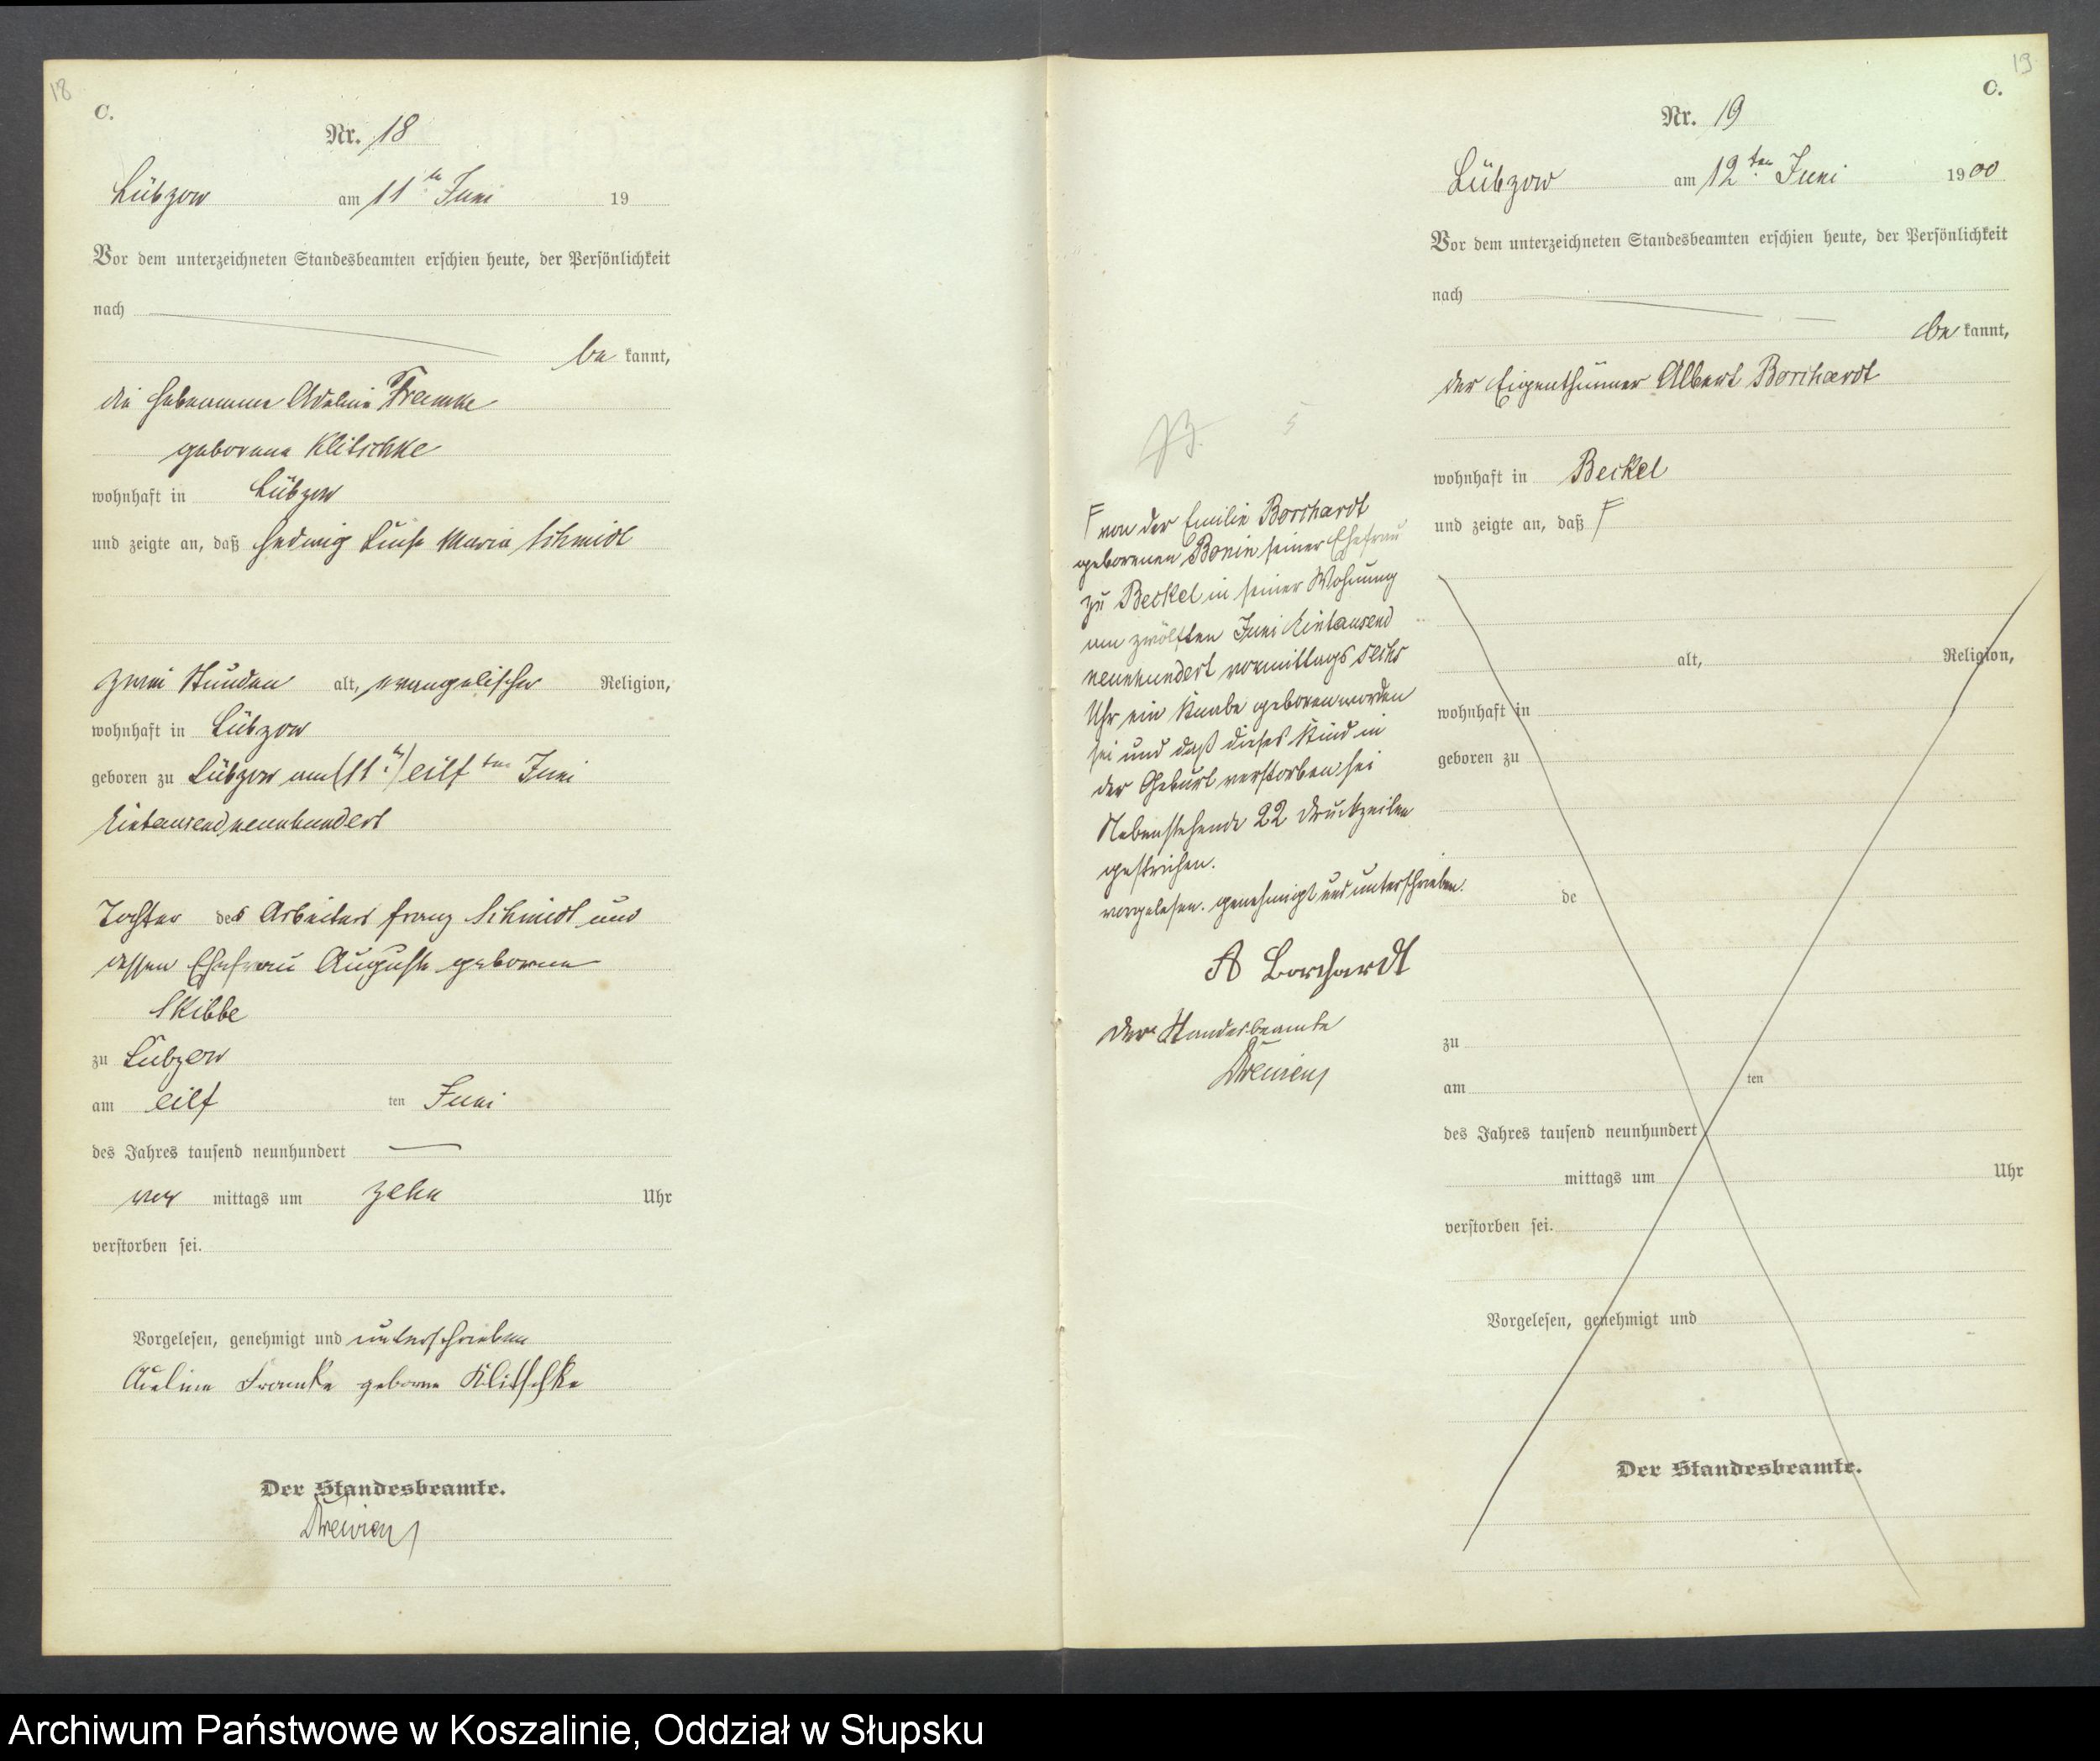 18
C.
Nr. 18
Lübzow am 11ten Juni 19
Vor dem unterzeichneten Standesbeamten erschien heute, der Persönlichkeit
nach
be kannt,
die Hebeamme Adeline Framke
geborene Klitschke
wohnhaft in Lübzow
und zeigte an, daß Hedwig Luise Maria Schmidt
zwei Stunden alt, evangelischer Religion,
wohnhaft in Lübzow
geboren zu Lübzow am (11ten) eilften Juni
Eintausend neunhundert
Tochter des Arbeiters Franz Schmidt und
dessen Ehefrau Auguste geborene
Skibbe
zu Lübzow
am eilf ten Juni
des Jahres tausend neunhundert
vor mittags um zehn Uhr
verstorben sei.
Vorgelesen, genehmigt und unterschrieben
Adeline Framke geborne Klitschke
Der Standesbeamte.
19
C.
Nr. 19
Lübzow am 12ten Juni 1900
Vor dem unterzeichneten Standesbeamten erschien heute, der Persönlichkeit
nach
be kannt,
der Eigenthümer Albert Borchardt
wohnhaft in Beckel
und zeigte an, daß F
alt, Religion,
wohnhaft in
geboren zu
de
zu
am ten
des Jahres tausend neunhundert
mittags um Uhr
verstorben sei.
Vorgelesen, genehmigt und
Der Standesbeamte.
F von der Emilie Borchardt
geborenen Bonin seiner Ehefrau
zu Beckel in seiner Wohnung
am zwölften Juni Eintausend
neunhundert vormittags sechs
Uhr ein Knabe geboren worden
sei und daß dieses Kind in
der Geburt verstorben sei
Nebenstehende 22 Druckzeilen
gestrichen.
vorgelesen. genehmigt und unterschrieben.
A Borchardt
Der Standesbeamte
Archiwum Państwowe w Koszalinie, Oddział w Słupsku